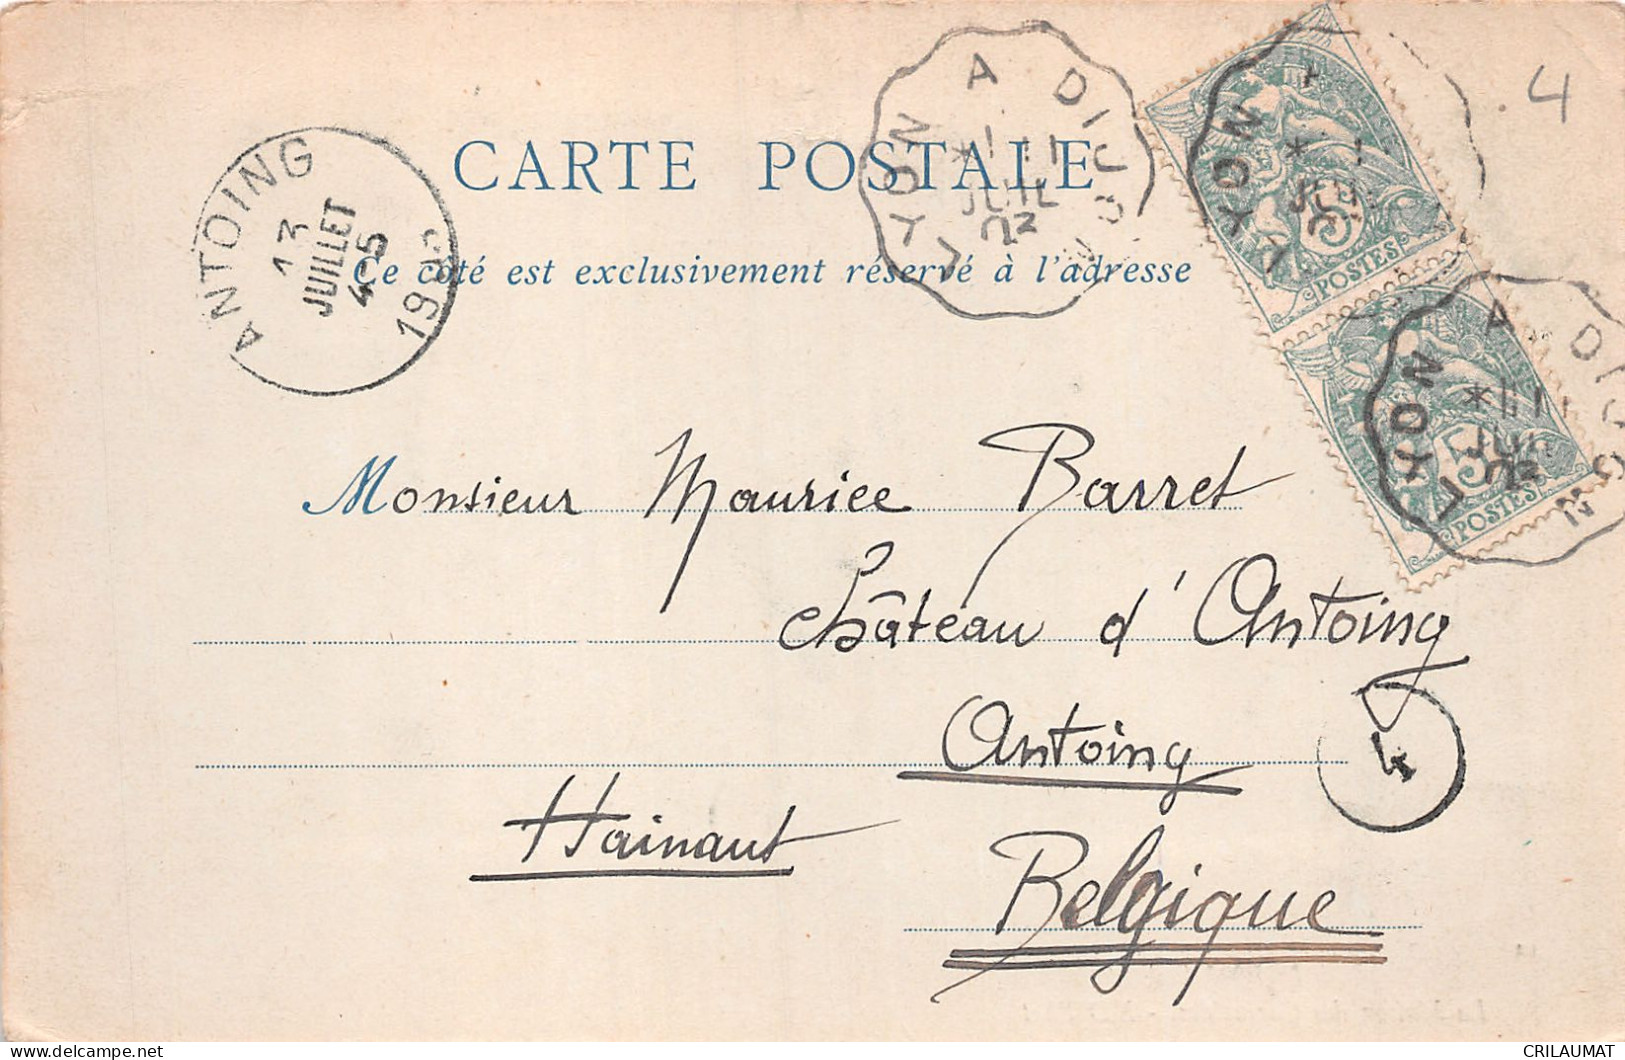 4
CARTE POSTALE
Ce côté est exclusivement réservé à l'adresse
ANTOING
13
JUILLET
4-5
19
LYON A DIJON
JUIL
LYON
5
POSTES
LYON A DIJON
JUIL
5
POSTES
Monsieur Maurice Barret
Château d'Antoing
Antoing
4
Hainaut
Belgique
CRILAUMAT